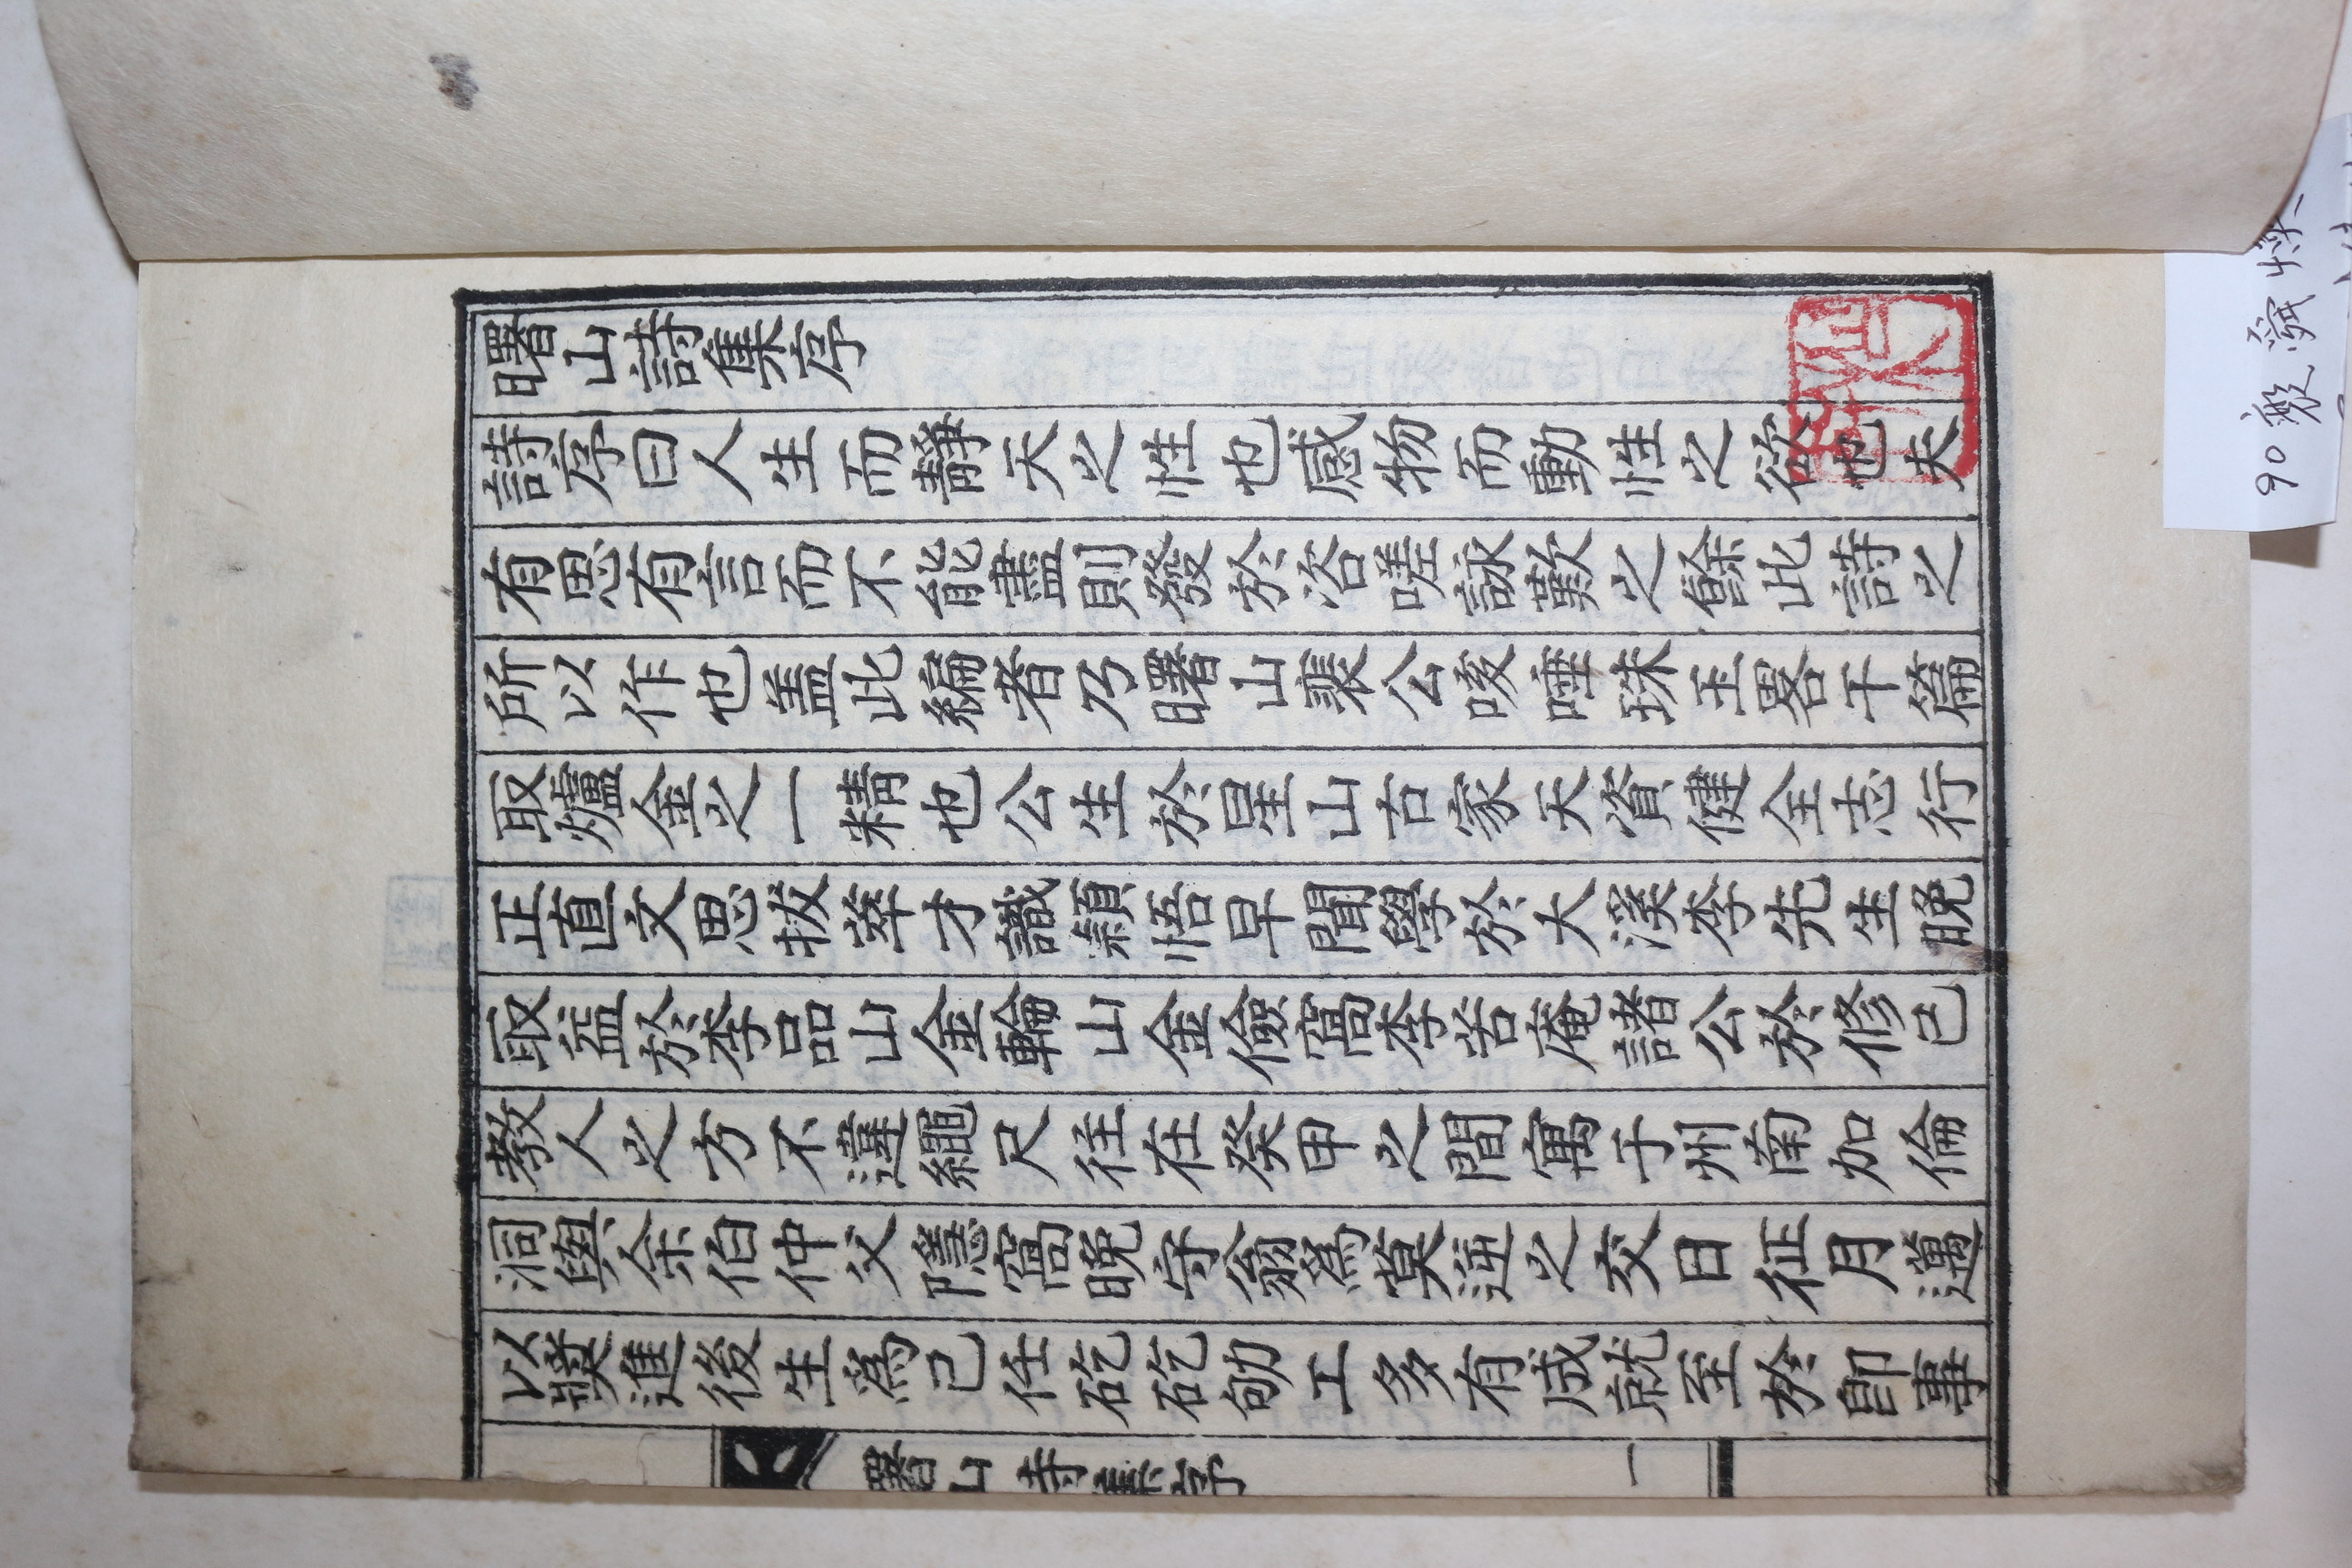 曙山詩集序
詩序曰人生而靜天之性也感物而動性之欲也夫
有思有言而不能盡則發於咨嗟詠歎之餘此詩之
所以作也盖此編者乃曙山裵公咳唾珠玉畧干篇
取爐金之一精也公生於星山古家天資健全志行
正直文思拔萃才識穎悟早聞學於大溪李先生晚
取益於李品山金輪山金儉窩李苦庵諸公於修己
教人之方不違繩尺往在癸甲之間寓于州南加倫
洞與余伯仲父隱窩晚守翁爲莫逆之交日征月邁
以奬進後生爲己任矻矻劬工多有成就至於卽事
曙山詩集序
一
90 裵舜煥